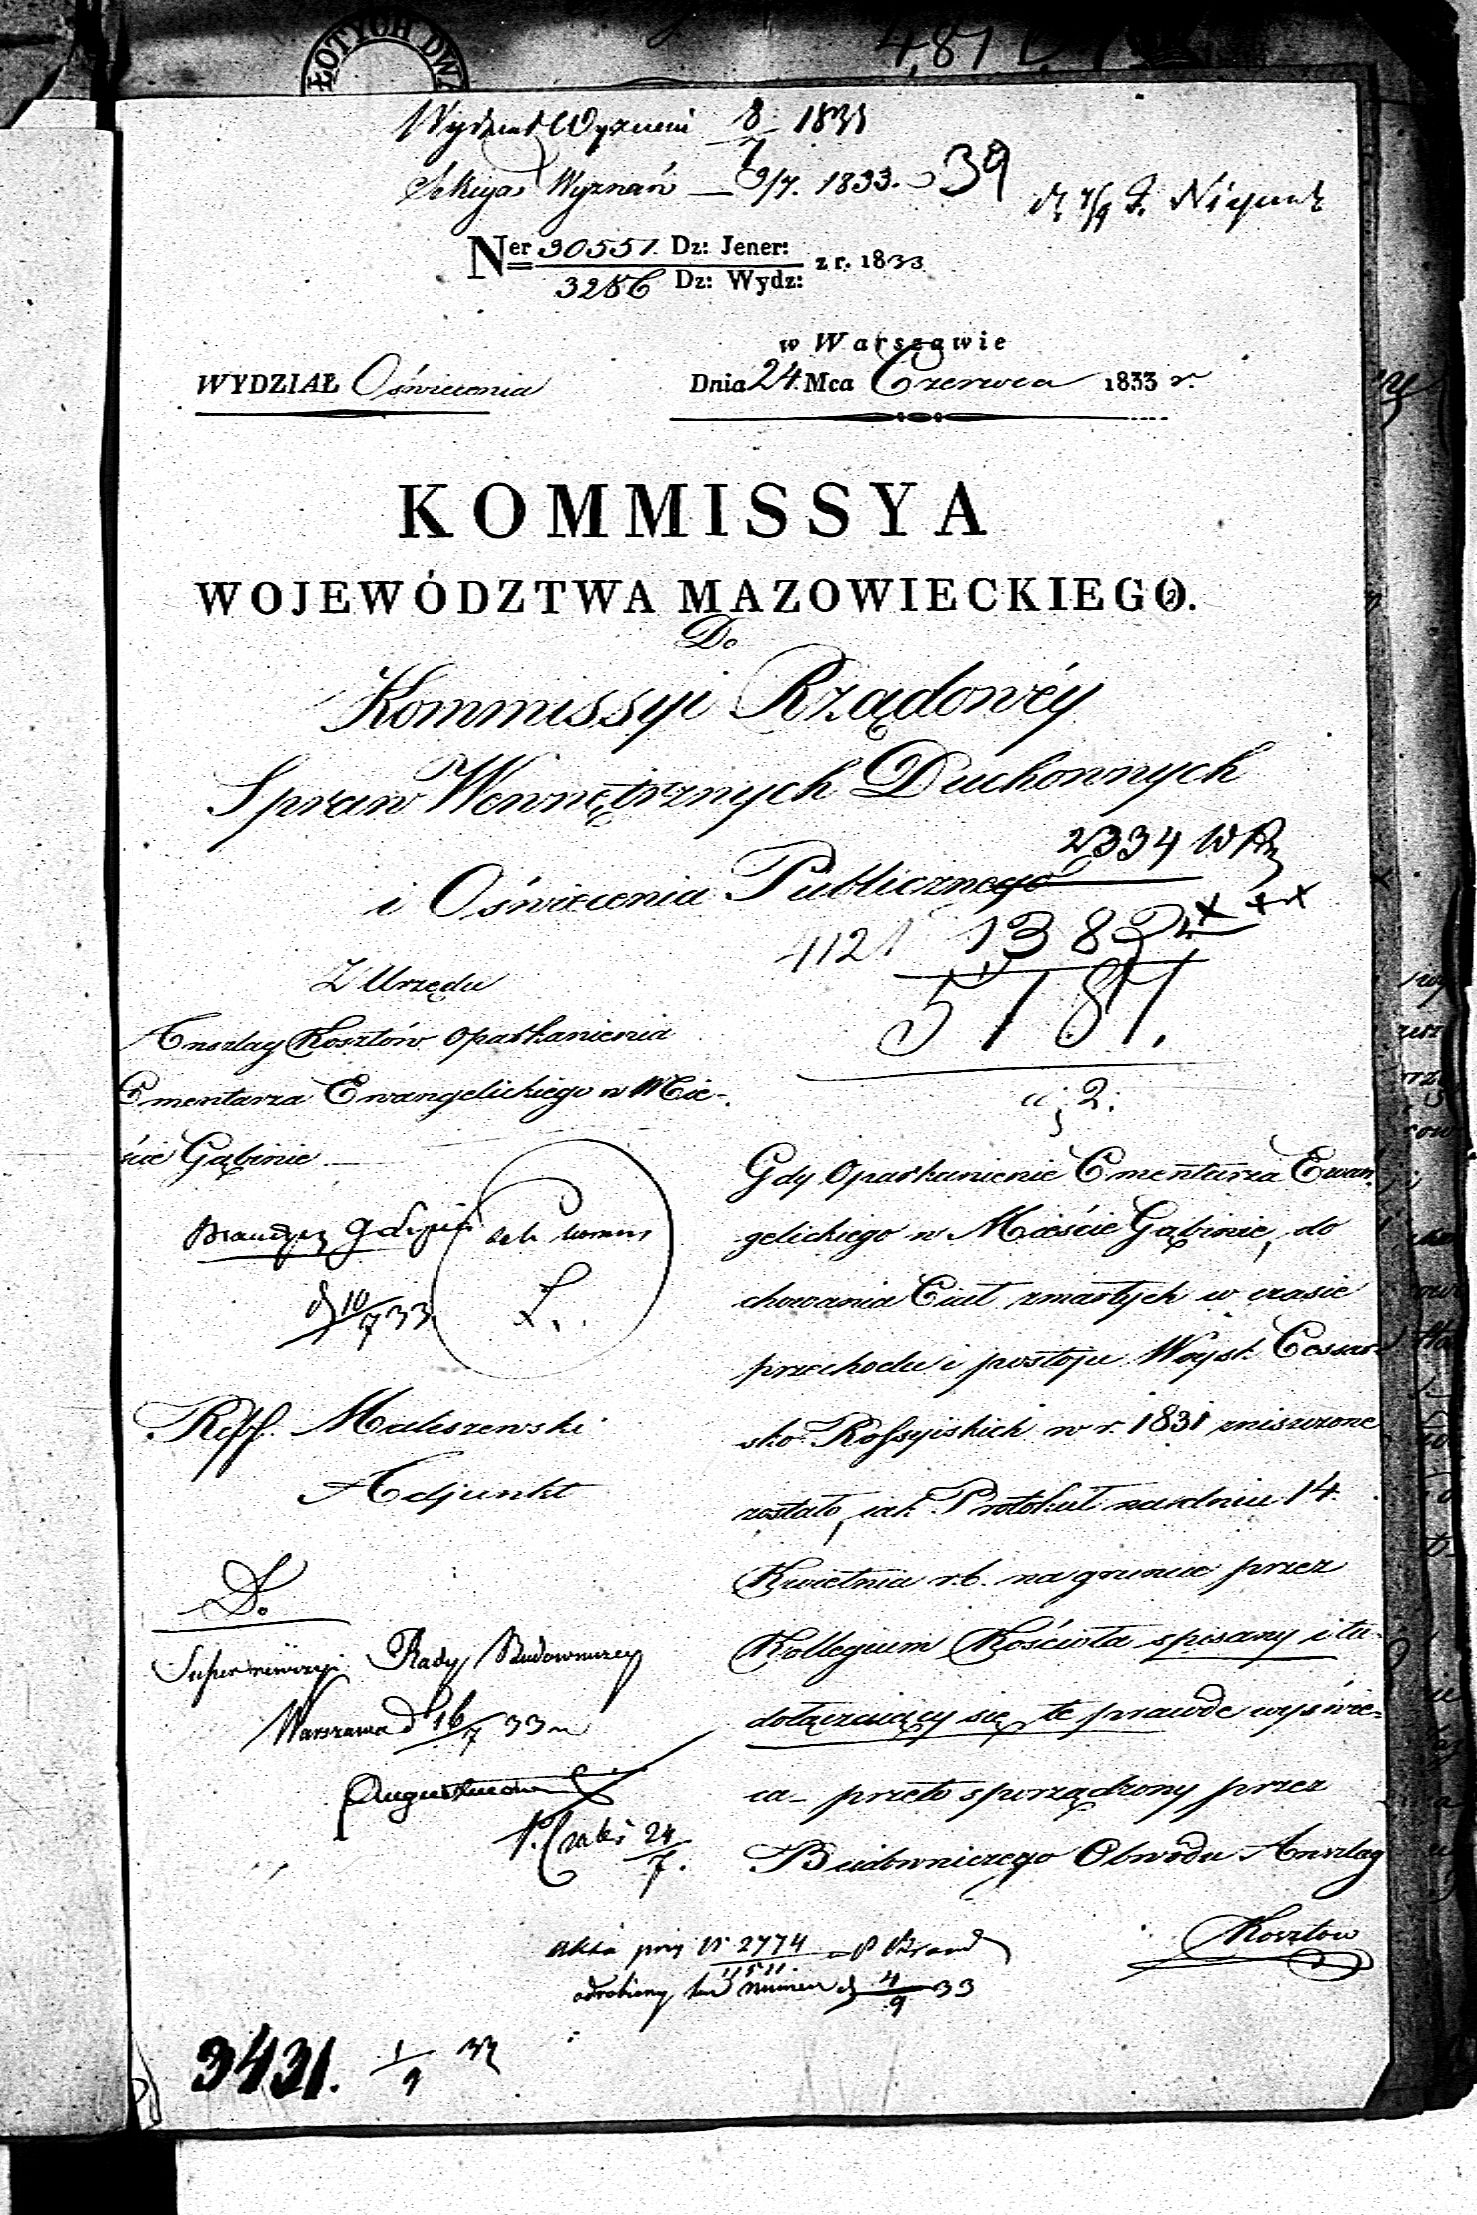 ŁOTYCH DWA
Wydział Wyznań 8/7 1833
Sekcya Wyznań 9/7. 1833. 39
Ner 30551. Dz: Jener:
3286 Dz: Wydz: z r. 1833
w Warszawie
WYDZIAŁ Oświecenia Dnia 24. Mca Czerwca 1833 r.
KOMMISSYA
WOJEWÓDZTWA MAZOWIECKIEGO.
Do
Kommissyi Rządowéy
Spraw Wewnętrznych Duchownych
i Oświecenia Publicznego
2334
1121 1382
5787.
Z Urzędu
Anszlag Kosztów Oparkanienia
Cmentarza Ewangelickiego w Mie-
ście Gąbinie
d 10/7 33
Reff. Maliszewski
Adjunkt
Do
Superrewizyi Rady Budowniczey
Warszawa d 16/7 33 r
24/7.
a, 2.
Gdy Oparkanienie Cmentarza Ewan-
gelickiego w Mieście Gąbinie, do
chowania Ciał zmarłych w czasie
przechodu i postoju Woysk Cesar-
sko Rossyiskich w r. 1831 zniszczone
zostało, jak Protokuł na dniu 14.
Kwietnia r. b. na gruncie przez
Kollegium Kościoła spisany i tu
dołączaiący się tę prawdę wyświe-
ca – przeto sporządzony przez
Budowniczego Obwodu Anszlag
Kosztów
akta przy N 2774
11511.
odrobiony ten numer d 4/9 33
3431. 1/9 33